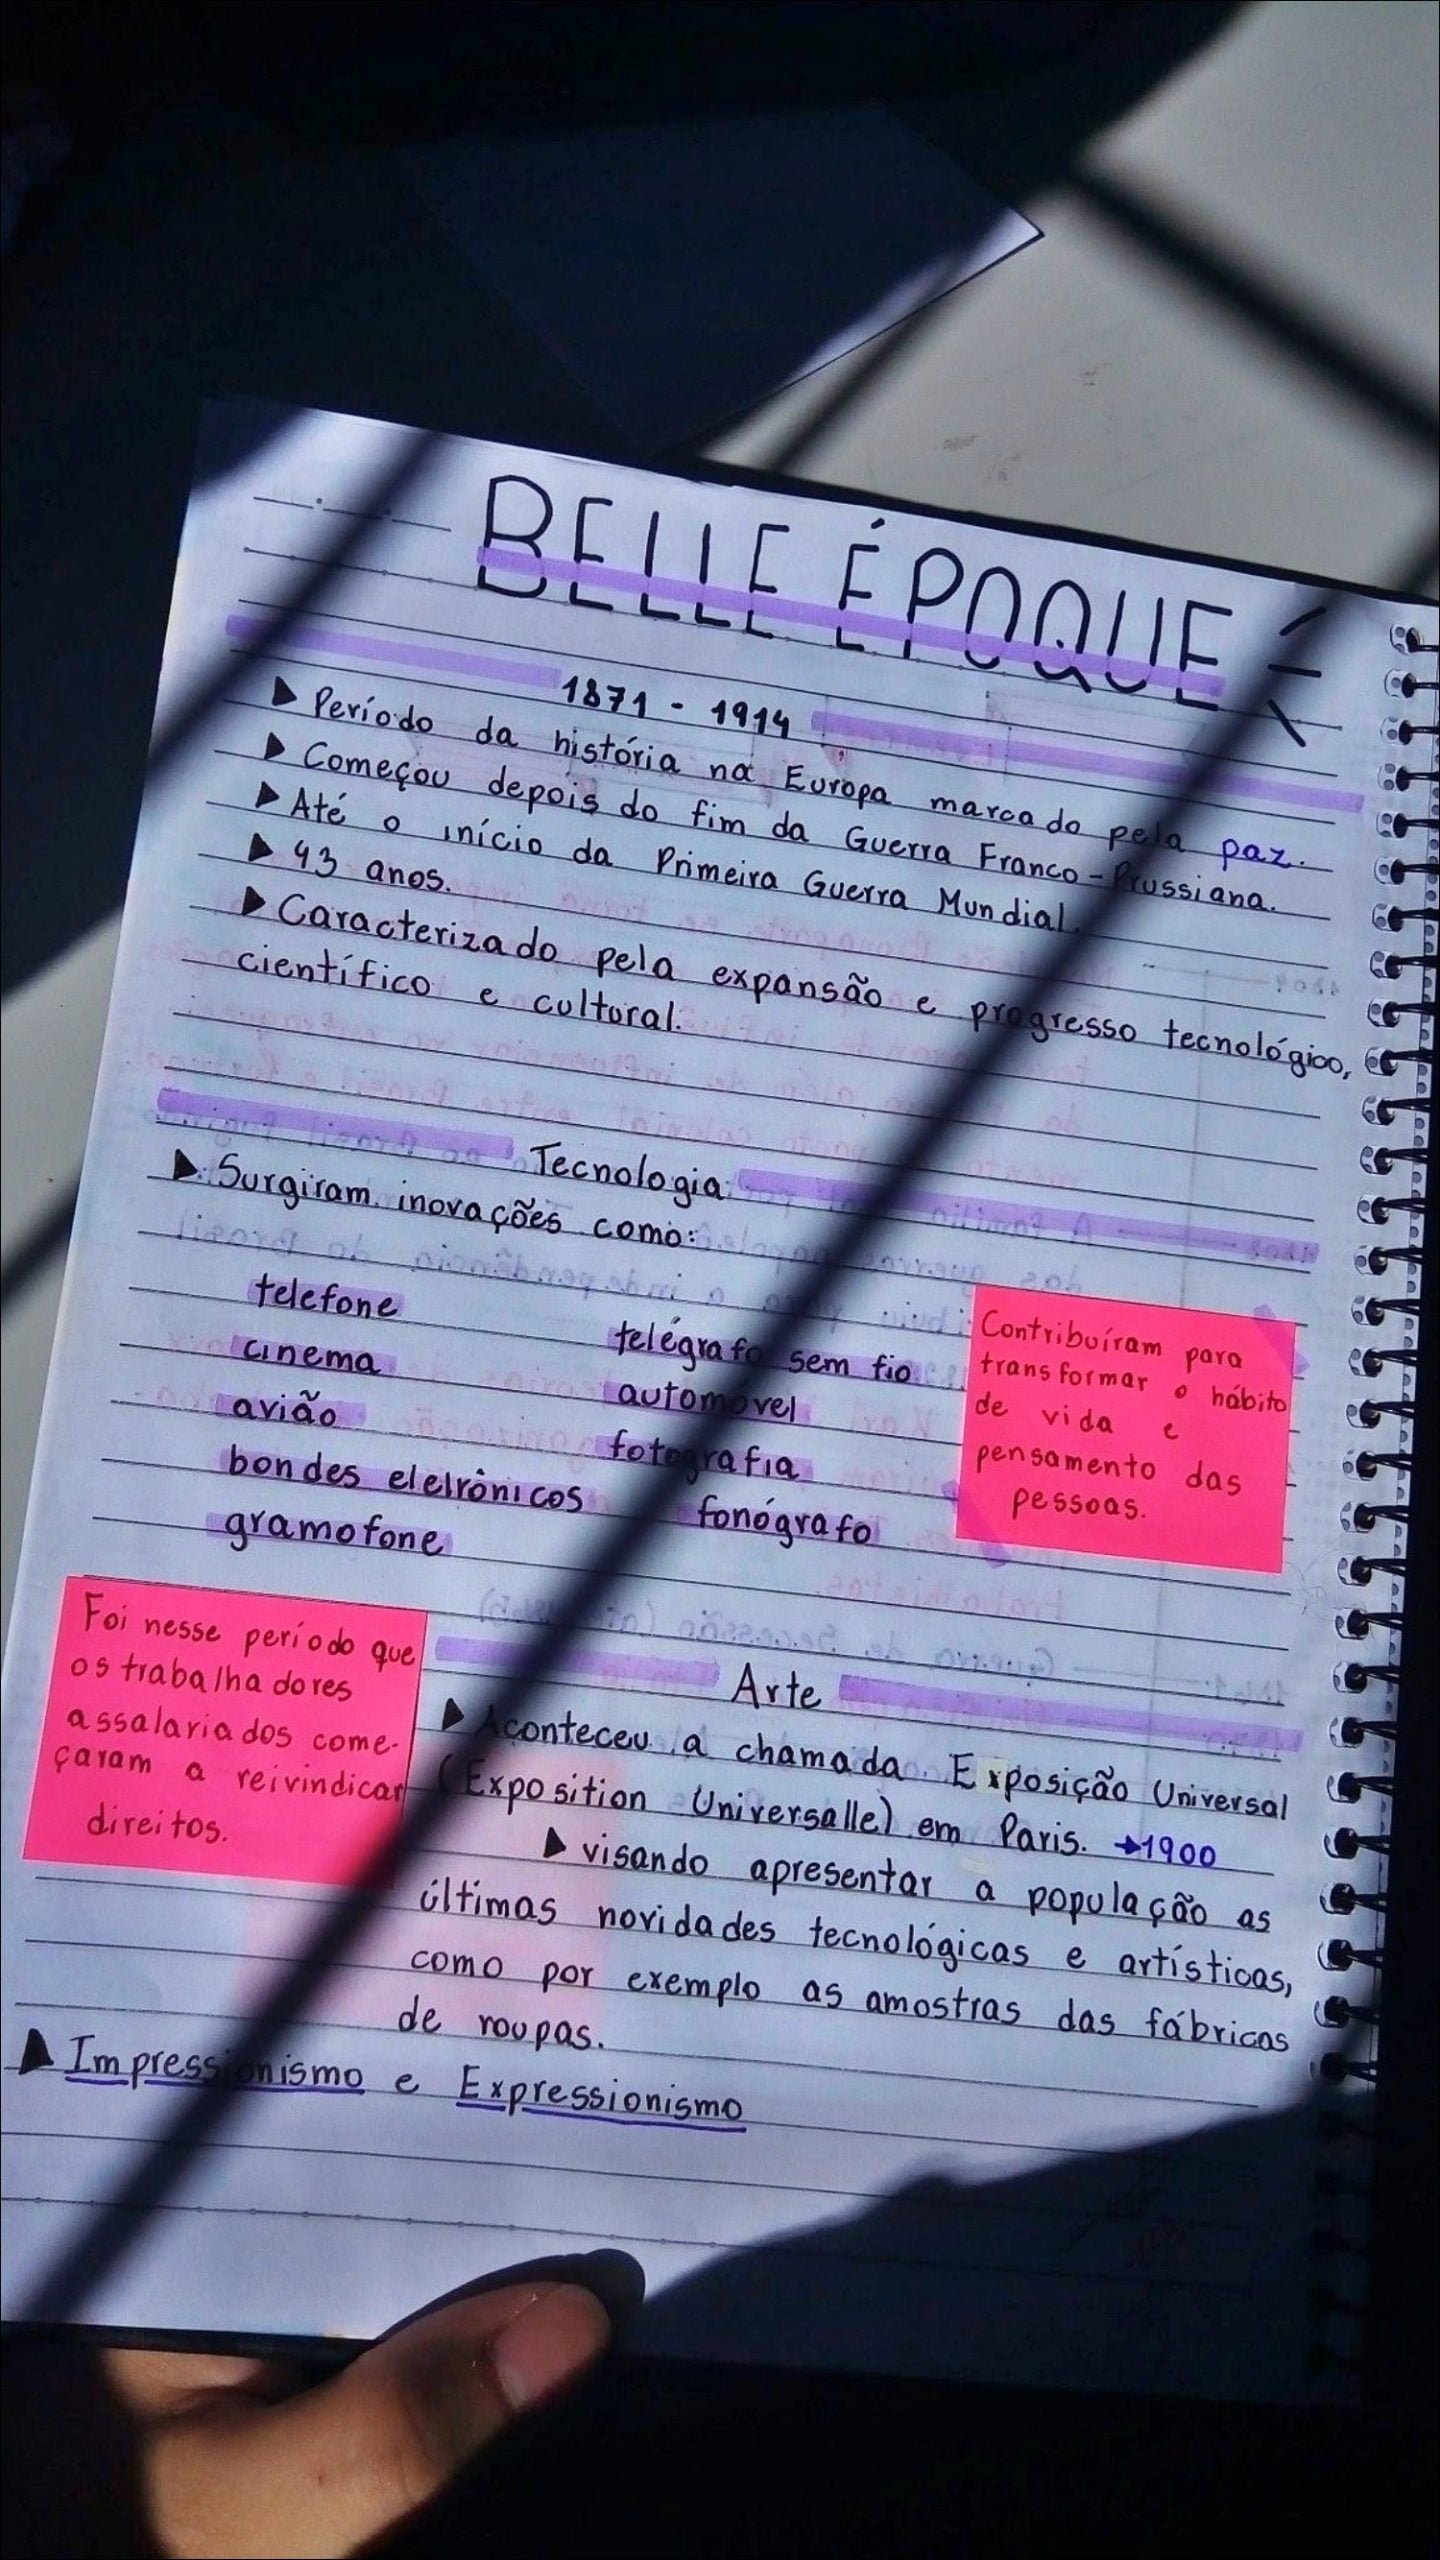 BELLE ÉPOQUE
1871 - 1914
Período da história na Europa marcado pela paz.
Começou depois do fim da Guerra Franco-Prussiana.
Até o início da Primeira Guerra Mundial.
43 anos.
Caracterizado pela expansão e progresso tecnológico,
científico e cultural.
Tecnologia
Surgiram inovações como:
telefone
telégrafo sem fio
cinema
automóvel
avião
fotografia
bondes elelrônicos
fonógrafo
gramofone
Contribuíram para
transformar o hábito
de vida e
pensamento das
pessoas.
Foi nesse período que
os trabalhadores
assalariados come-
çaram a reivindicar
direitos.
Arte
Aconteceu a chamada Exposição Universal
(Exposition Universalle) em Paris. →1900
visando apresentar a população as
últimas novidades tecnológicas e artísticas,
como por exemplo as amostras das fábricas
de roupas.
Impressionismo e Expressionismo